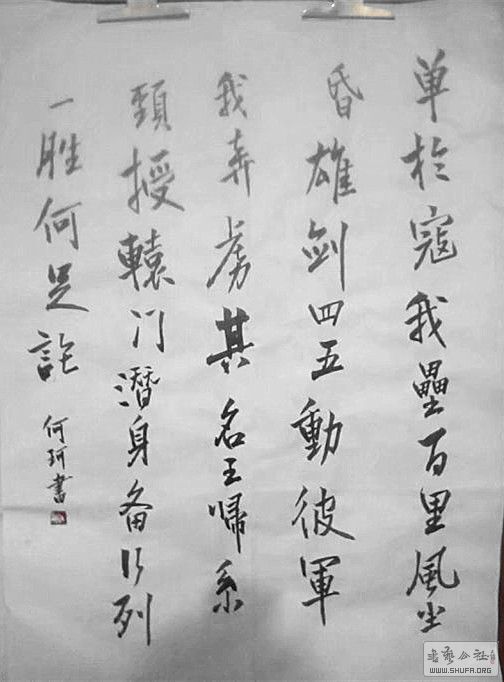 单於寇我壘百里風尘
昏雄劍四五動彼軍
我奔虏其名王帰系
頸授轅门潛身备行列
一胜何足論
何珂書
书藝公社
WWW.SHUFA.ORG